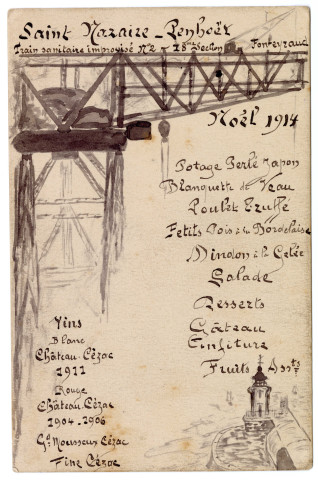 Saint Nazaire - Penhoët
Train sanitaire improvisé N°2 - 18ème Section Fontevraud
Noël 1914
Potage Perlé Japon
Blanquette de Veau
Poulet Truffé
Petits Pois à la Bordelaise
Dindon à la Gelée
Salade
Desserts
Gâteau
Confiture
Fruits Assts
Vins
Blanc
Château-Cézac
1911
Rouge
Château-Cézac
1904-1906
Gd Mousseux Cézac
Fine Cézac